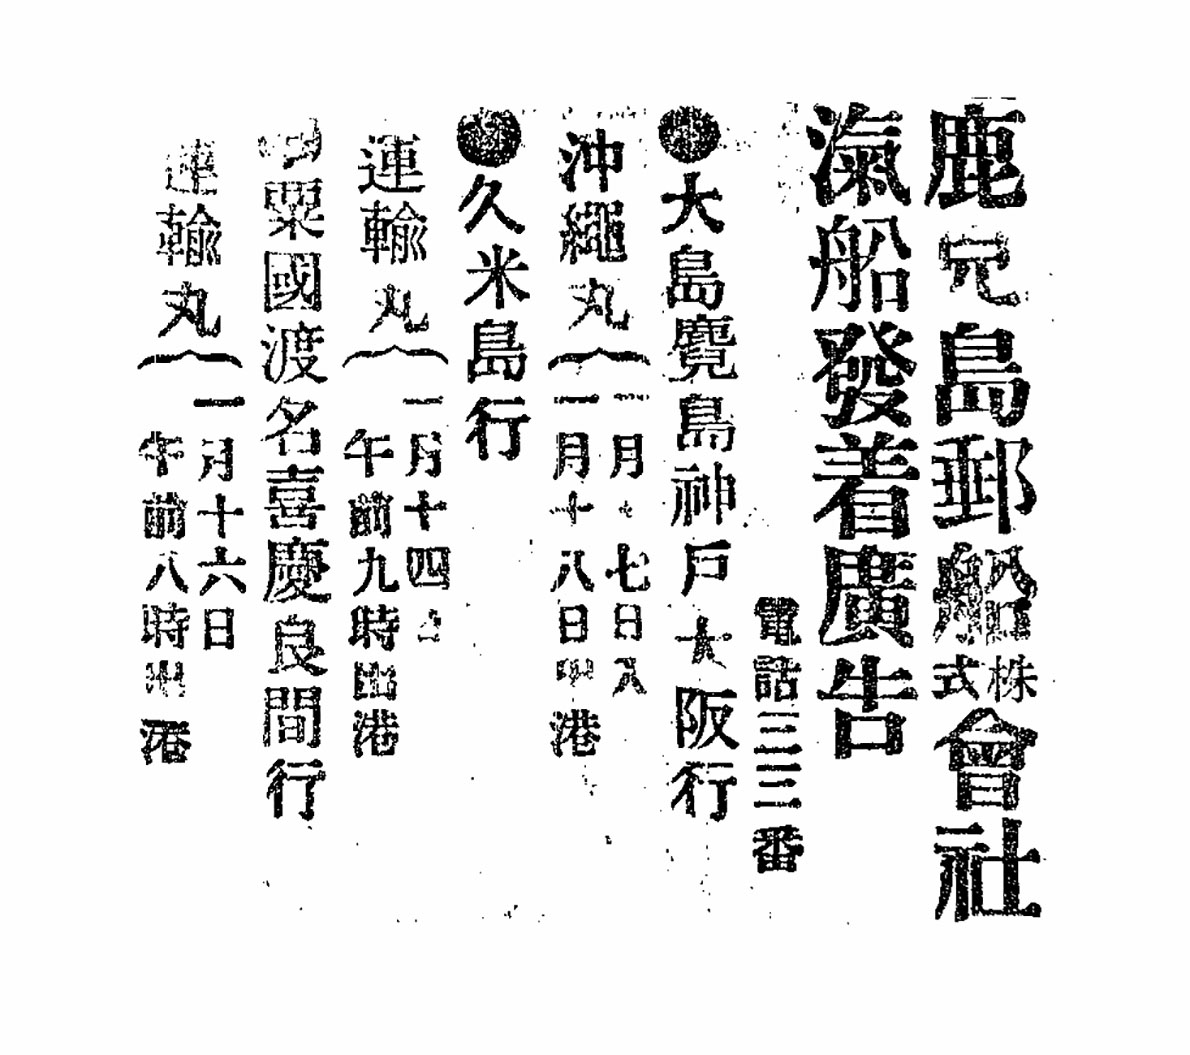 鹿兒島郵船株式會社
滊船發着廣告
電話三三番
●大島麑島神戸大阪行
沖繩丸{一月十七日入
一月十八日出港
●久米島行
運輸丸{一月十四日
午前九時出港
●粟國渡名喜慶良間行
運輸丸{一月十六日
午前八時出港